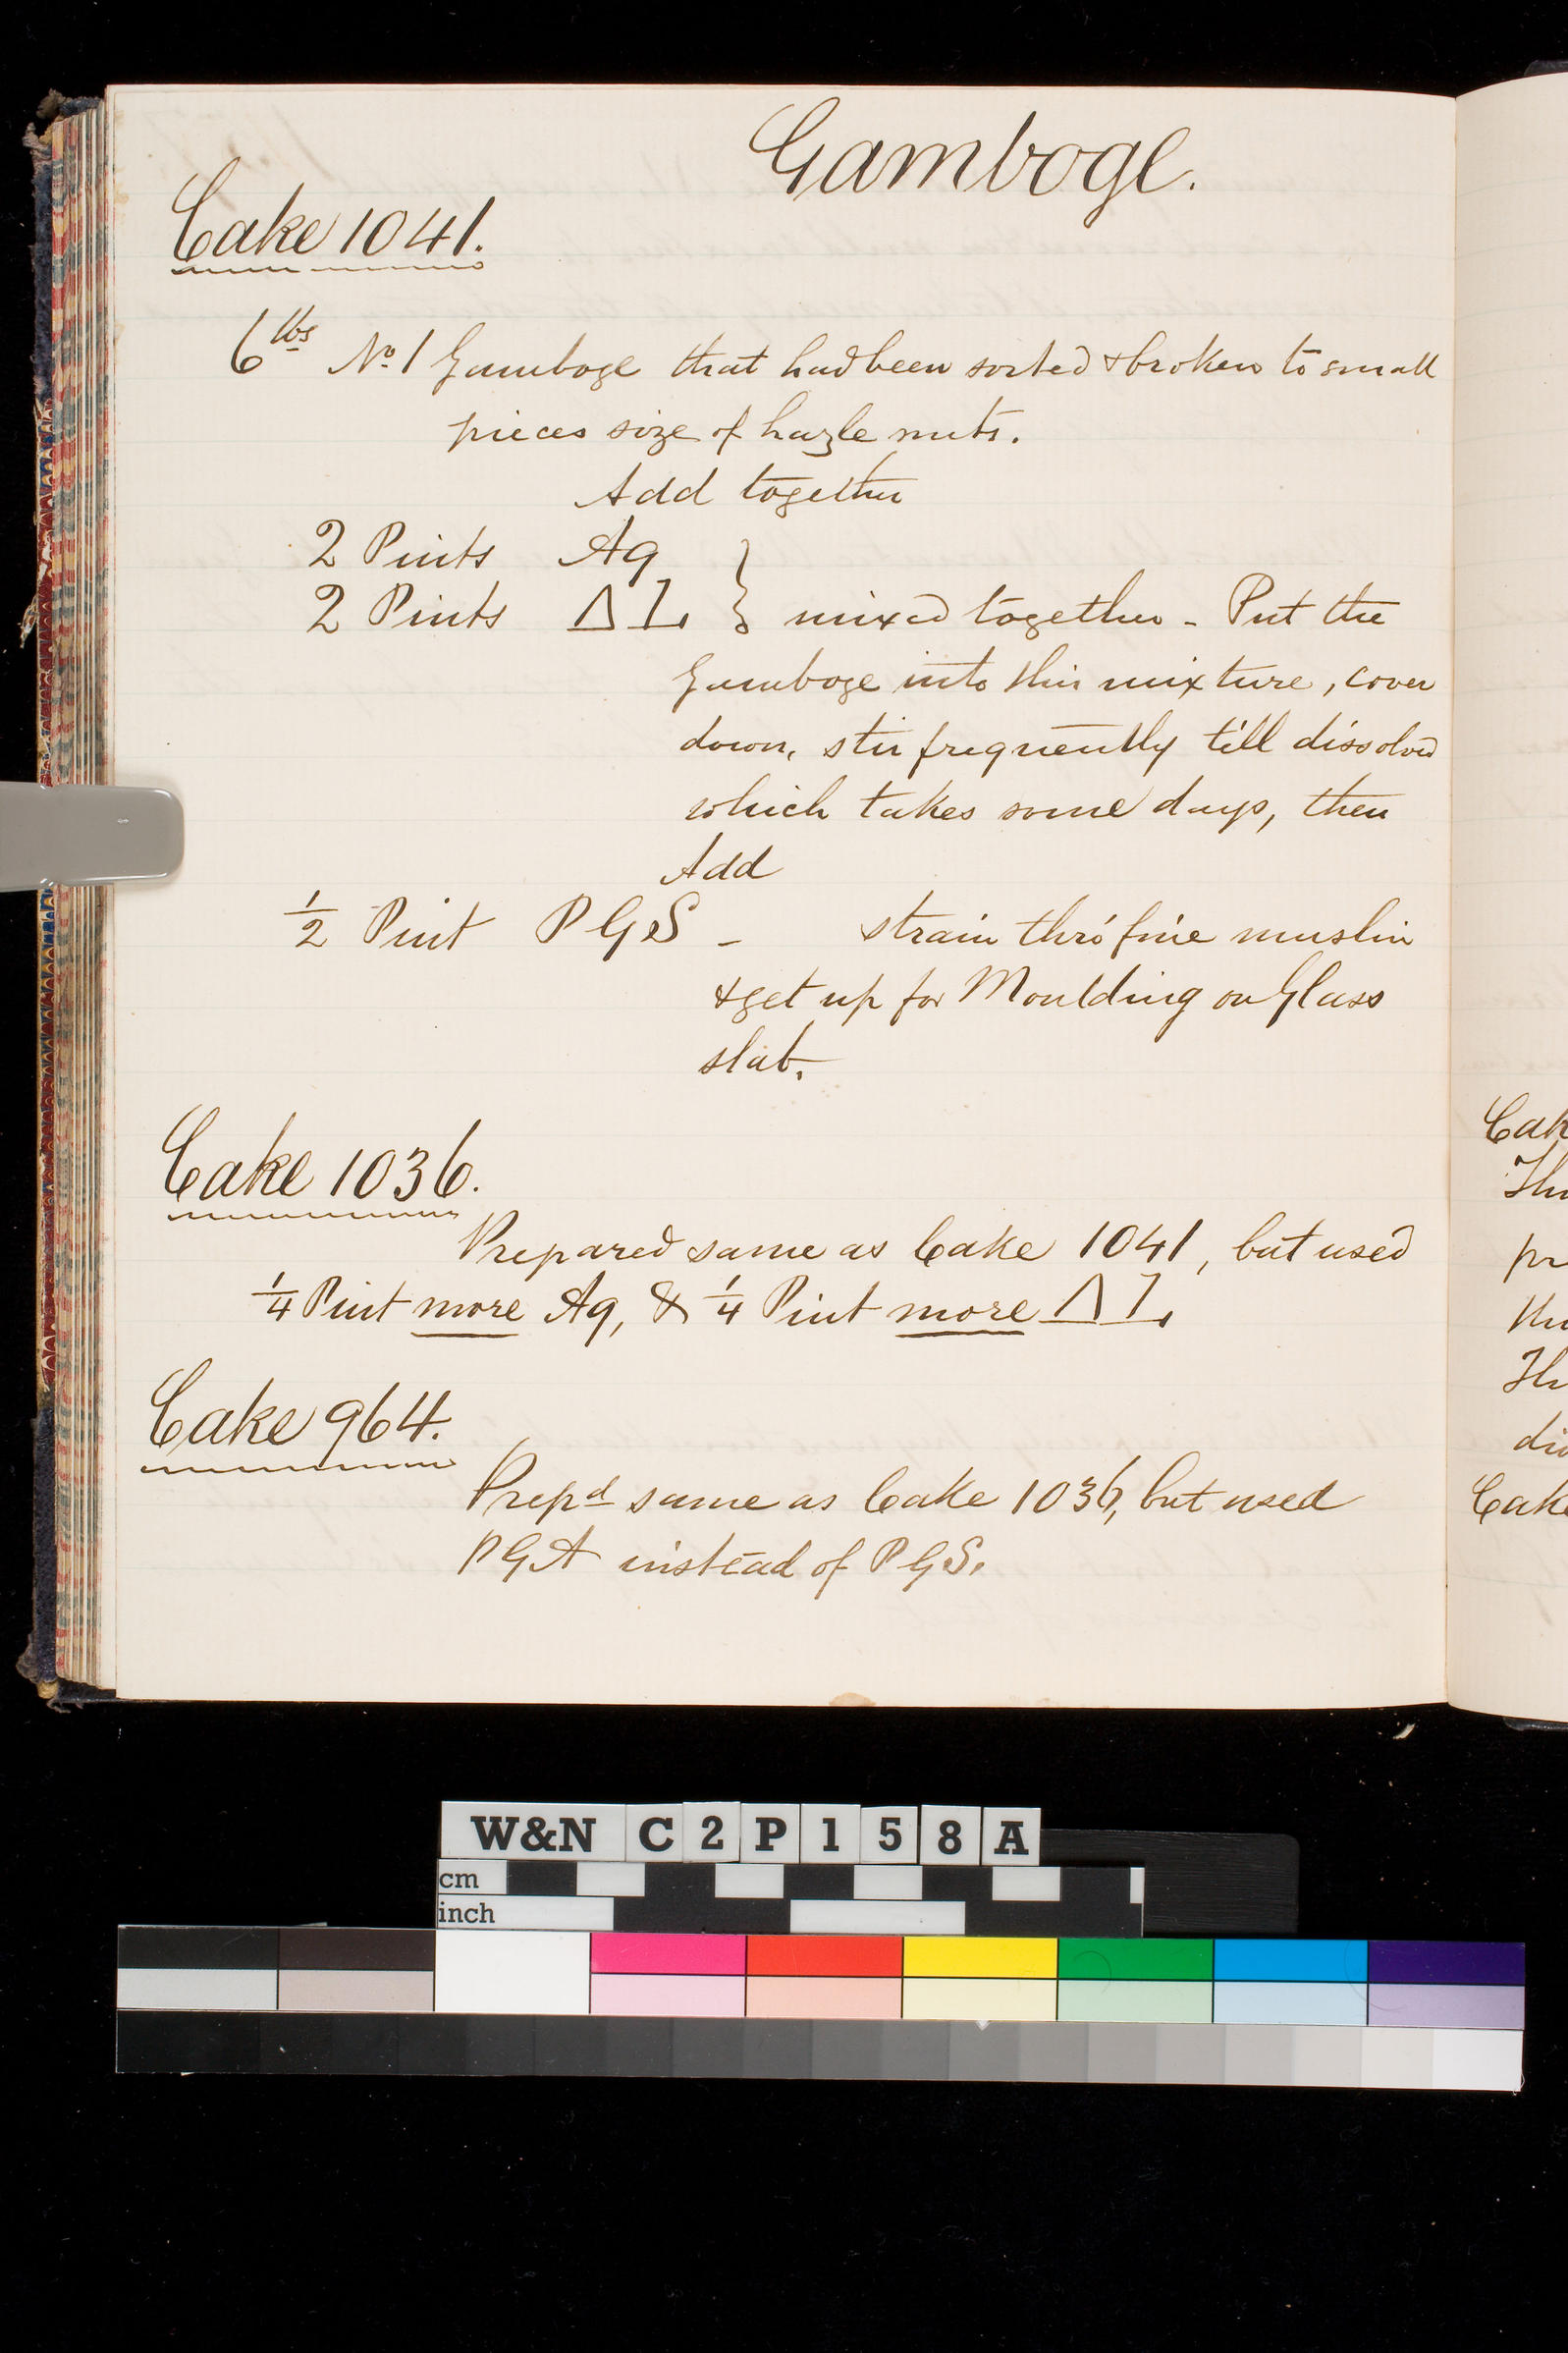 Gamboge.
Cake 1041.
6 lbs No. 1 Gamboge that had been sorted & broken to small
pieces size of hazle nuts.
Add together
2 Pints Aq
2 Pints Δ L. } mixed together - Put the
Gamboge into this mixture, cover
down, stir frequently till dissolved
which takes some days, then
Add
1/2 Pint P G S - strain thro' fine muslin
& get up for Moulding on Glass
slab.
Cake 1036.
Prepared same as Cake 1041, but used
1/4 Pint more Aq, & 1/4 Pint more Δ L.
Cake 964.
Prepd same as Cake 1036, but used
P G A instead of P G S.
Cak
pr
Cake
W&N C2P158A
cm
inch